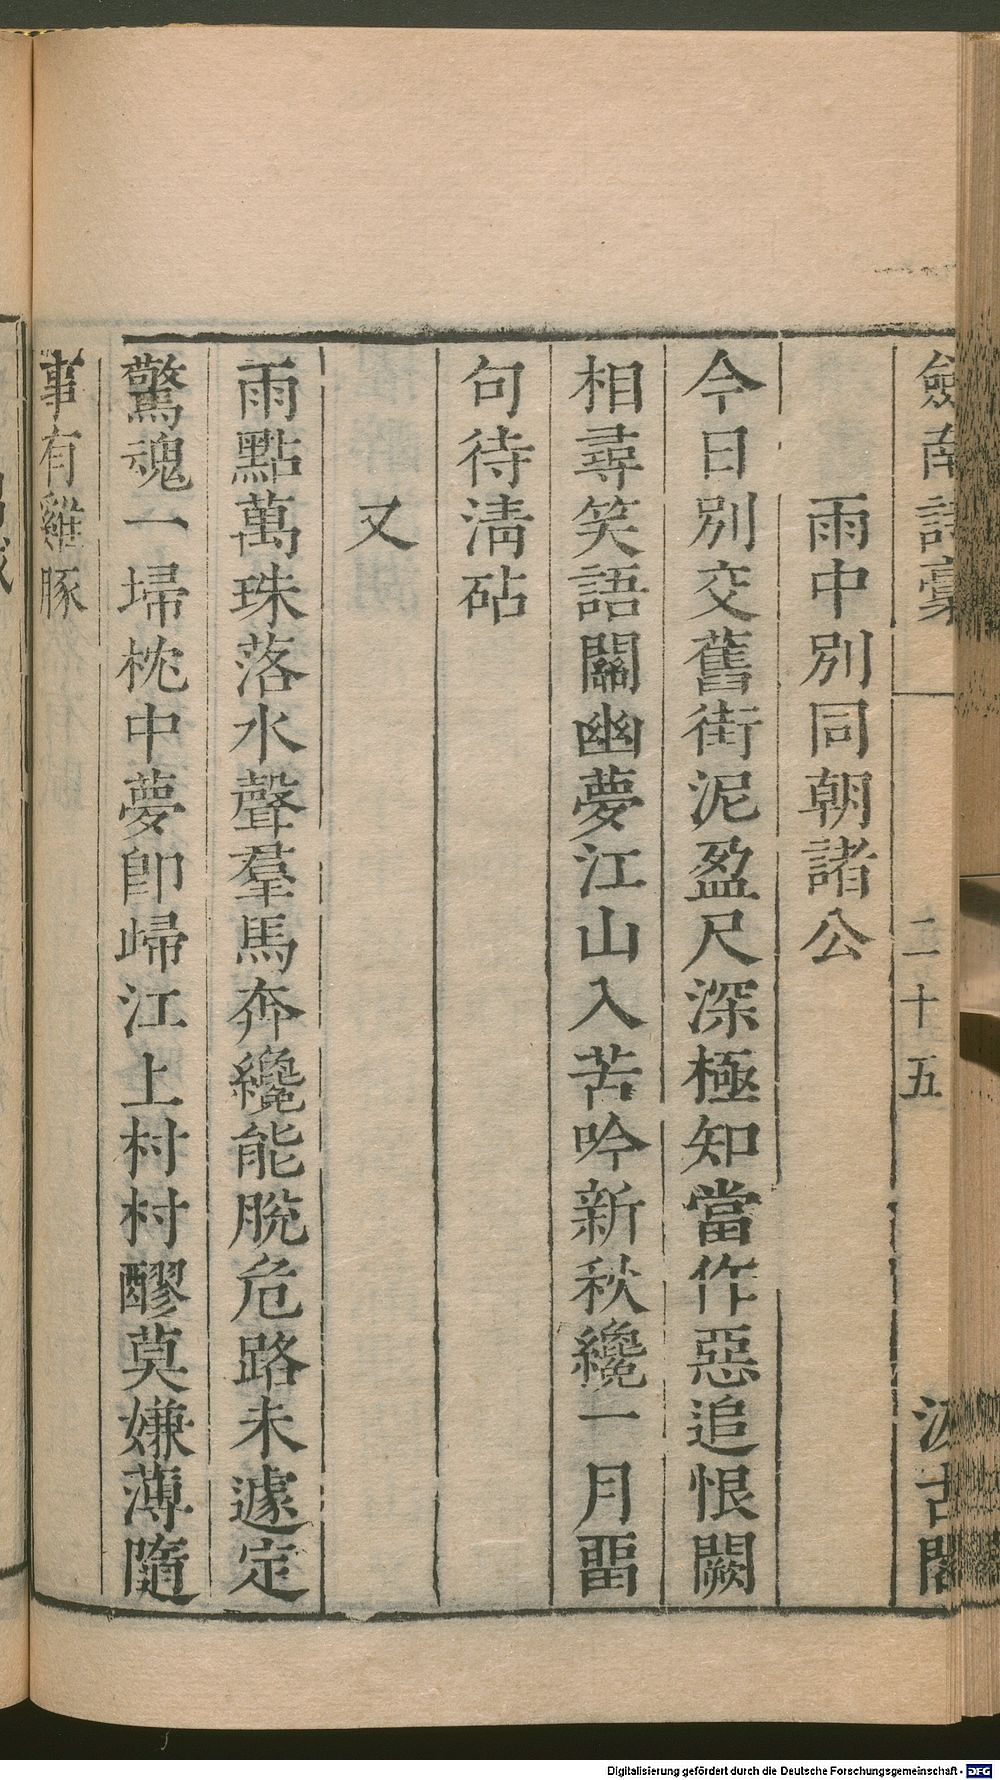 劍南詩稾 二十五 汲古閣
雨中別同朝諸公
今日別交舊街泥盈尺深極知當作惡追恨闕
相尋笑語闗幽夢江山入苦吟新秋纔一月畱
句待淸砧
又
雨點萬珠落水聲羣馬奔纔能脫危路未遽定
驚魂一埽枕中夢卽歸江上村村醪莫嫌薄隨
事有雞豚
Digitalisierung gefördert durch die Deutsche Forschungsgemeinschaft - DFG